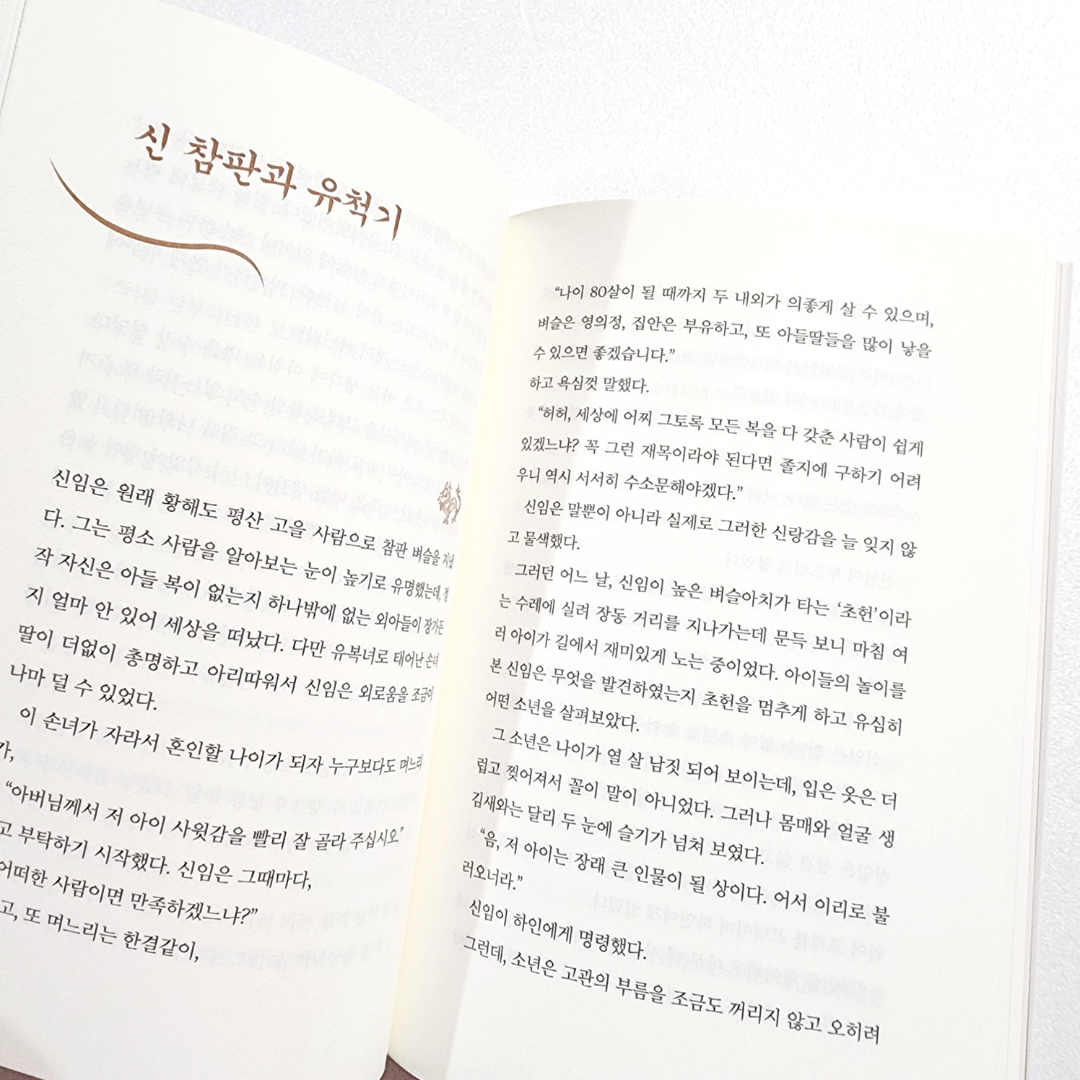 신 참판과 유척기
신임은 원래 황해도 평산 고을 사람으로 참판 벼슬을 지냈
다. 그는 평소 사람을 알아보는 눈이 높기로 유명했는데, 정
작 자신은 아들 복이 없는지 하나밖에 없는 외아들이 장가든
지 얼마 안 있어 세상을 떠났다. 다만 유복녀로 태어난 손녀
딸이 더없이 총명하고 아리따워서 신임은 외로움을 조금이
나마 덜 수 있었다.
이 손녀가 자라서 혼인할 나이가 되자 누구보다도 며느리
가,
“아버님께서 저 아이 사윗감을 빨리 잘 골라 주십시오.”
고 부탁하기 시작했다. 신임은 그때마다,
어떠한 사람이면 만족하겠느냐?”
고, 또 며느리는 한결같이,
“나이 80살이 될 때까지 두 내외가 의좋게 살 수 있으며,
벼슬은 영의정, 집안은 부유하고, 또 아들딸들을 많이 낳을
수 있으면 좋겠습니다.”
하고 욕심껏 말했다.
“허허, 세상에 어찌 그토록 모든 복을 다 갖춘 사람이 쉽게
있겠느냐? 꼭 그런 재목이라야 된다면 졸지에 구하기 어려
우니 역시 서서히 수소문해야겠다.”
신임은 말뿐이 아니라 실제로 그러한 신랑감을 늘 잊지 않
고 물색했다.
그러던 어느 날, 신임이 높은 벼슬아치가 타는 ‘초헌’이라
는 수레에 실려 장동 거리를 지나가는데 문득 보니 마침 여
러 아이가 길에서 재미있게 노는 중이었다. 아이들의 놀이를
본 신임은 무엇을 발견하였는지 초헌을 멈추게 하고 유심히
어떤 소년을 살펴보았다.
그 소년은 나이가 열 살 남짓 되어 보이는데, 입은 옷은 더
럽고 찢어져서 꼴이 말이 아니었다. 그러나 몸매와 얼굴 생
김새와는 달리 두 눈에 슬기가 넘쳐 보였다.
“음, 저 아이는 장래 큰 인물이 될 상이다. 어서 이리로 불
러오너라.”
신임이 하인에게 명령했다.
그런데, 소년은 고관의 부름을 조금도 꺼리지 않고 오히려